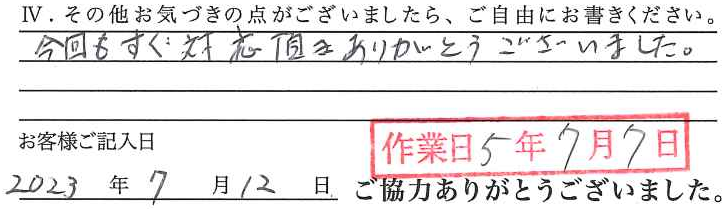 Ⅳ．その他お気づきの点がございましたら、ご自由にお書きください。
今回もすぐ対応頂きありがとうございました。
お客様ご記入日
作業日5年7月7日
2023年7月12日
ご協力ありがとうございました。